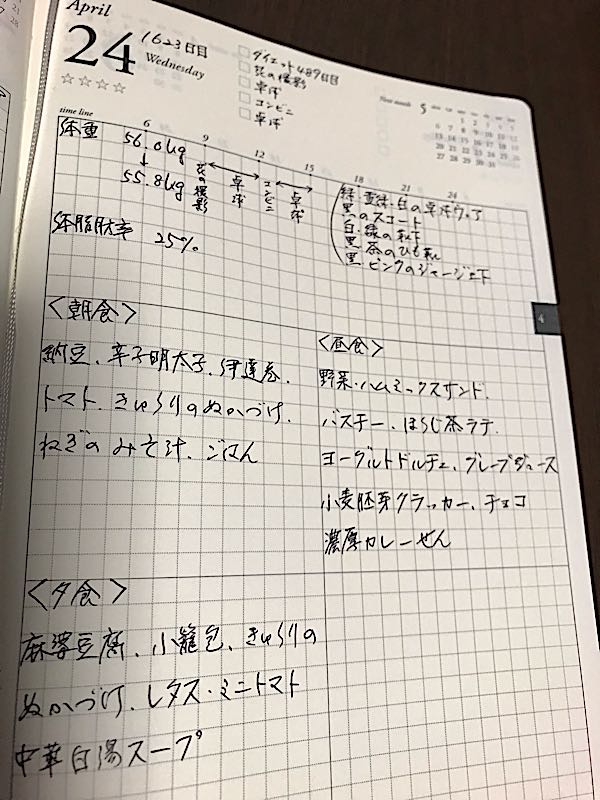 April
24
1623日目
Wednesday
☆☆☆☆
ダイエット489日目
花の撮影
卓球
コンビニ
卓球
Next month 5
time line
6 9 12 15 18 21 24
体重
56.0kg
↓
55.8kg
花の撮影
卓球
コンビニ
卓球
緑・黄緑・白の卓球ウェア
黒のスコート
白・緑の靴下
黒・茶のひも靴
黒・ピンクのジャージ上下
体脂肪率 25%
4
<朝食>
納豆、辛子明太子、伊達巻、
トマト、きゅうりのぬかづけ、
ねぎのみそ汁、ごはん
<昼食>
野菜・ハムミックスサンド、
バスチー、ほうじ茶ラテ、
ヨーグルトドルチェ、グレープジュース
小麦胚芽クラッカー、チョコ
濃厚カレーせん
<夕食>
麻婆豆腐、小籠包、きゅうりの
ぬかづけ、レタス・ミニトマト
中華白湯スープ